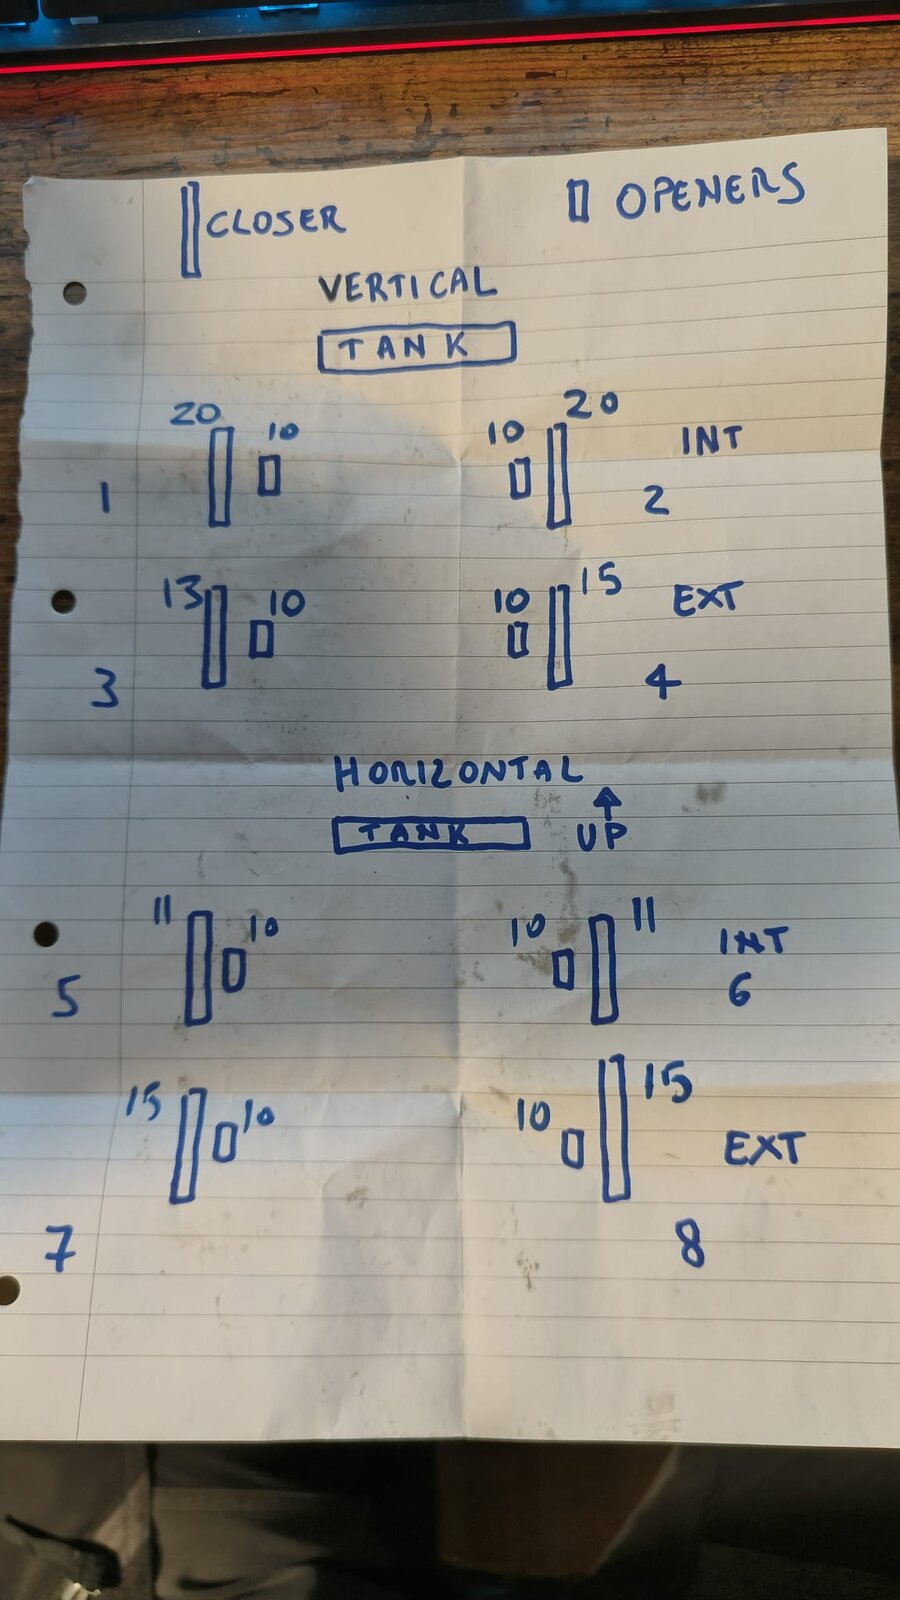 CLOSER OPENERS
VERTICAL
TANK
20 10 10 20 INT
1 2
13 10 10 15 EXT
3 4
HORIZONTAL
TANK UP
11 10 10 11 INT
5 6
15 10 10 15 EXT
7 8